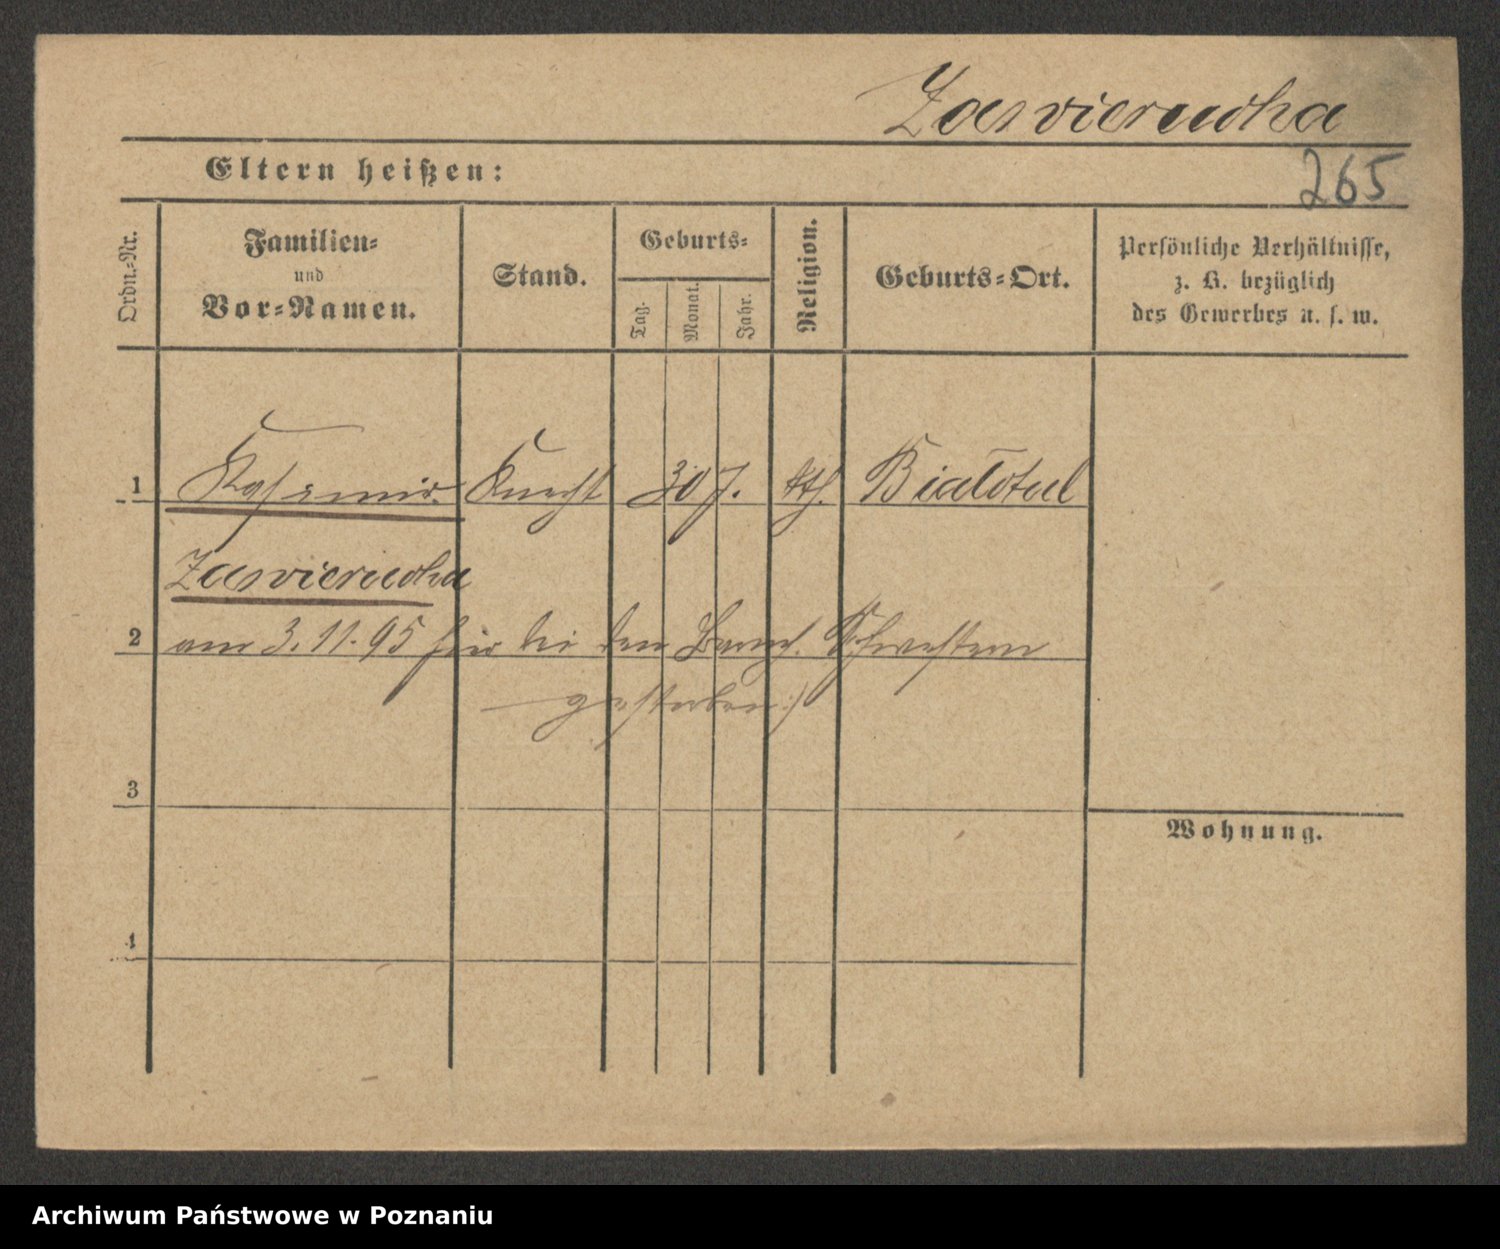 Zawierucha
Eltern heißen:
265
Ordn.-Nr.
Familien-
und
Vor-Namen.
Stand.
Geburts-
Tag.
Monat.
Jahr.
Religion.
Geburts-Ort.
Persönliche Verhältnisse,
z. B. bezüglich
des Gewerbes u. s. w.
1 Kasimir Knecht 30 J. kth.
Zawierucha
2 am 3.11.95 hier bei den Barmh. Schwestern
gestorben
3
Wohnung.
4
Archiwum Państwowe w Poznaniu